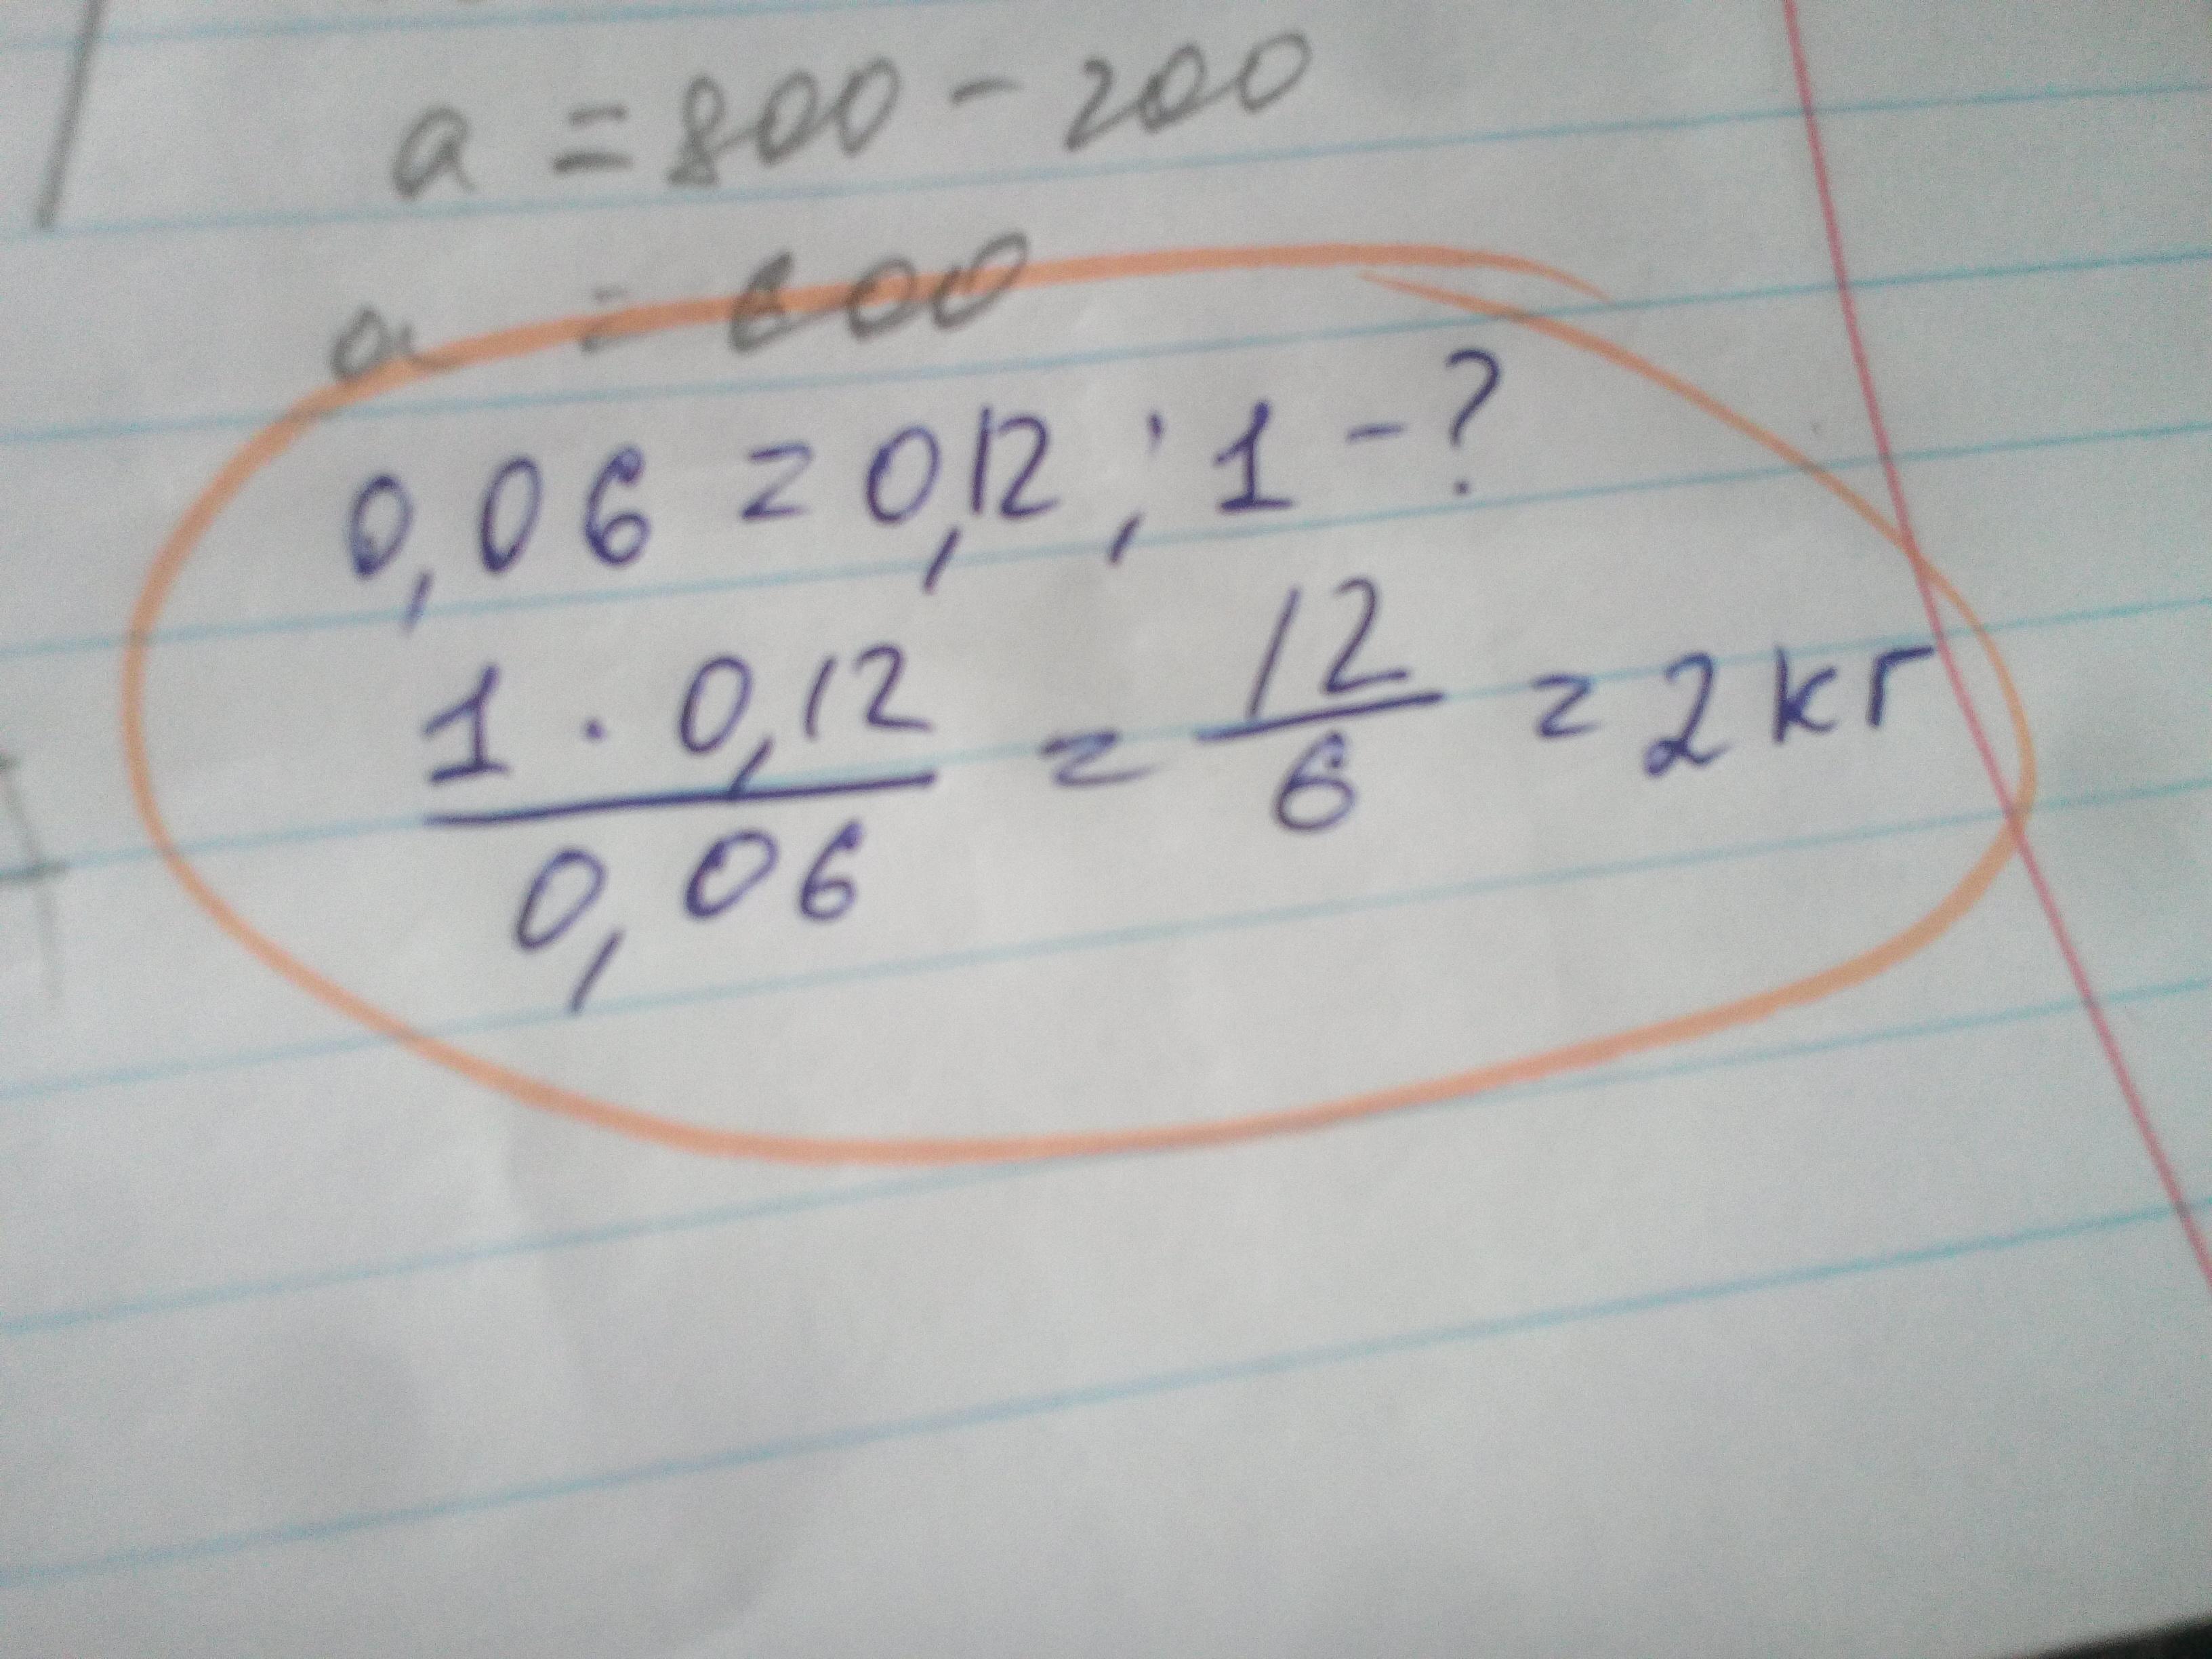 a = 800 - 200
a = 600
0,06 = 0,12 ; 1 - ?
1 · 0,12 / 0,06 = 12 / 6 = 2 кг